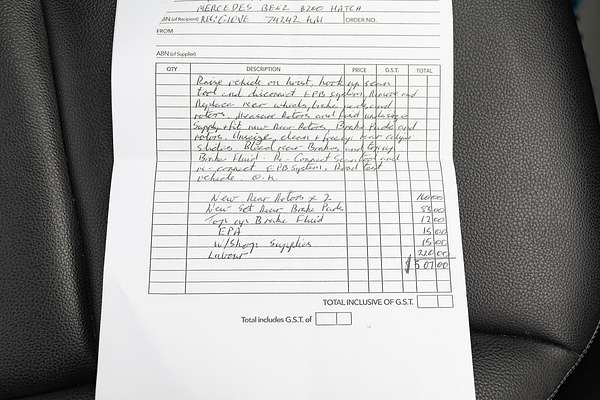 MERCEDES BENZ B200 HATCH
ABN (of Recipient) REG: 74242 KM ORDER NO.
FROM
ABN (of Supplier)
QTY DESCRIPTION PRICE G.S.T. TOTAL
Raise vehicle on hoist, hook up scan
tool and disconnect EPB system, Remove and
Replace rear wheels, brake pads and
rotors, measure Rotors and find undersize
Supply + fit new Rear Rotors, Brake Pads and
rotors, clean + freeup rear caliper
slides Bleed rear Brakes and top up
Brake Fluid - Re-Connect Scan tool and
re-connect EPB System, Road test
vehicle. O.K.
New Rear Rotors x 2
New Set Rear Brake Pads 00
Top up Brake Fluid 12 00
EPA 15 00
W/Shop Supplies 15 00
Labour 220 00
$507 00
TOTAL INCLUSIVE OF G.S.T.
Total includes G.S.T. of